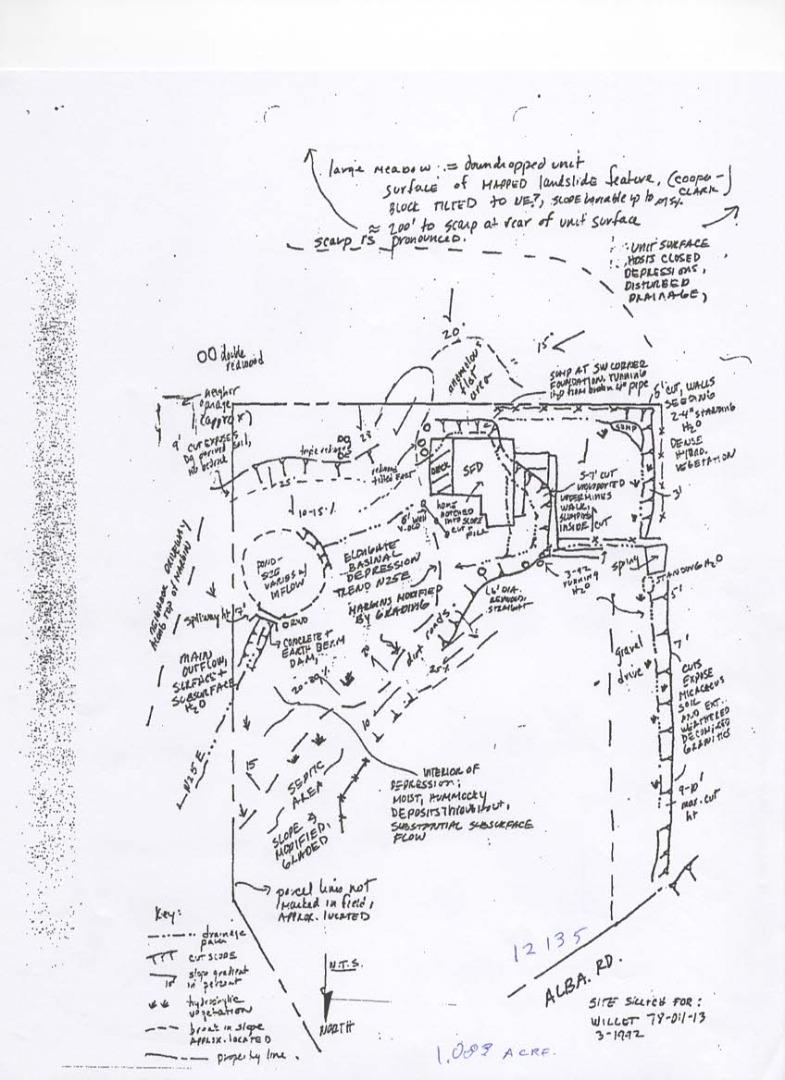 large MEADOW := downdropped unit
surface of MAPPED landslide feature, (COOPER-
CLARK)
BLOCK TILTED TO NE?, SLOPE variable up to
≈ 200' to scarp at rear of unit surface
scarp IS pronounced.
UNIT SURFACE
HOSTS CLOSED
DEPRESSIONS,
DISTURBED
DRAINAGE,
20°
15°
anomalous
flat
area
double
redwood
neighbor
garage
(approx)
9' CUT EXPOSES
Dg derived soil,
no bedrock
triple redwood
28
redwood
tilted East
25
10-15%
SUMP AT SW CORNER
FOUNDATION, RUNNING
H2O from broken 4" pipe
5' CUT, WALLS
SEEDING
2-4" STANDING
H2O
DENSE
HYDRO.
VEGETATION
SUMP
3'
DECK
SFD
5-7' CUT
UNSUPPORTED
UNDERMINES
WALK,
SLUMPING
INSIDE CUT
home
notched
into slope
CUT-
FILL
6' well
POND-
SIZE
VARIES w/
INFLOW
ELONGATE
BASINAL
DEPRESSION
TREND N25E
MARGINS MODIFIED
BY GRADING
NEIGHBOR DRIVEWAY
ALONG TOP OF MARGIN
spillway ht
RWD
CONCRETE +
EARTH BERM
DAM,
MAIN
OUTFLOW,
SURFACE +
SUBSURFACE
H2O
N25E
6' DIA.
REDWOOD,
STRAIGHT
3-92
RUNNING
H2O
spring
STANDING H2O
5'
7'
gravel
drive
CUTS
EXPOSE
MICACEOUS
SOIL
AND EXT.
WEATHERED
DECOMPOSED
GRANITICS
9-10'
max. cut
ht
dirt roads.
25%
20-29%
10
15
SEPTIC
AREA
SLOPE
MODIFIED,
GRADED
INTERIOR OF
DEPRESSION:
MOIST, HUMMOCKY
DEPOSITS THROUGHOUT,
SUBSTANTIAL SUBSURFACE
FLOW
parcel lines not
marked in field,
APPROX. LOCATED
Key:
drainage
path
CUT SLOPE
slope gradient
in percent
10
hydrophytic
vegetation
break in slope
APPROX. LOCATED
property line.
N.T.S.
NORTH
12135
ALBA. RD.
SITE SKETCH FOR:
WILLET 78-011-13
3-1992
1.089 ACRE.